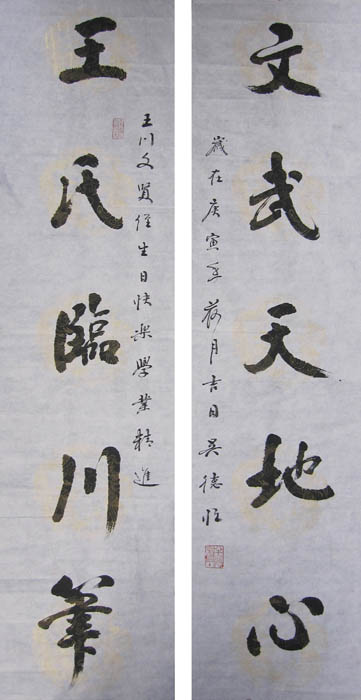 文武天地心
歲在庚寅年荷月吉日吴德恒
王氏臨川筆
王川文賢侄生日快樂學業精進